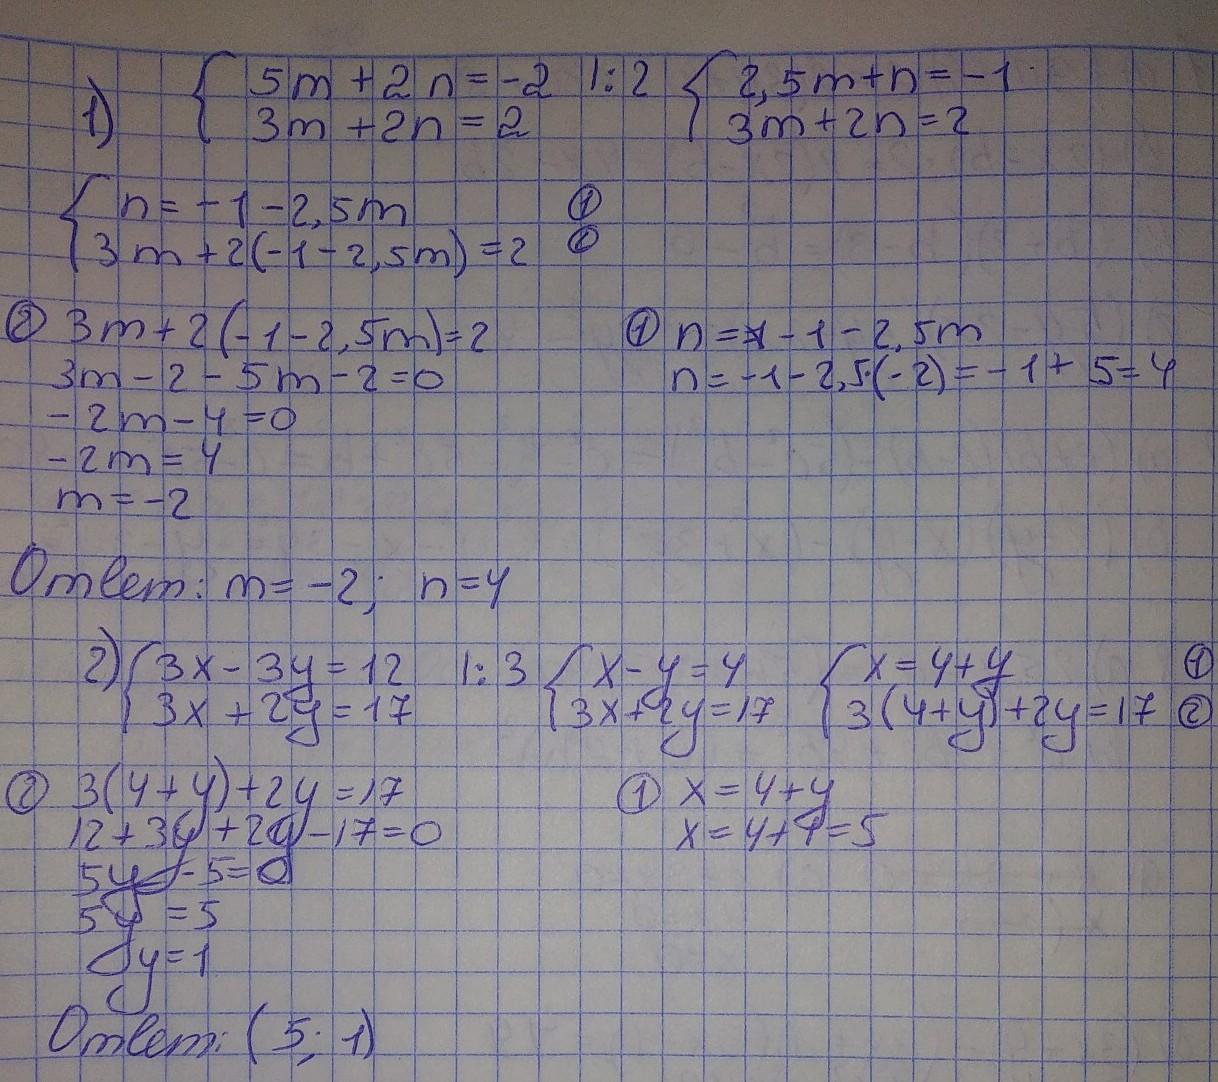 1) { 5m + 2n = -2 |:2 { 2,5m + n = -1
3m + 2n = 2 3m + 2n = 2
{ n = -1 - 2,5m ①
3m + 2(-1 - 2,5m) = 2 ②
② 3m + 2(-1 - 2,5m) = 2 ① n = -1 - 2,5m
3m - 2 - 5m - 2 = 0 n = -1 - 2,5·(-2) = -1 + 5 = 4
-2m - 4 = 0
-2m = 4
m = -2
Ответ: m = -2; n = 4
2) { 3x - 3y = 12 |:3 { x - y = 4 { x = 4 + y ①
3x + 2y = 17 3x + 2y = 17 3(4 + y) + 2y = 17 ②
② 3(4 + y) + 2y = 17 ① x = 4 + y
12 + 3y + 2y - 17 = 0 x = 4 + 1 = 5
5y - 5 = 0
5y = 5
y = 1
Ответ: (5; 1)